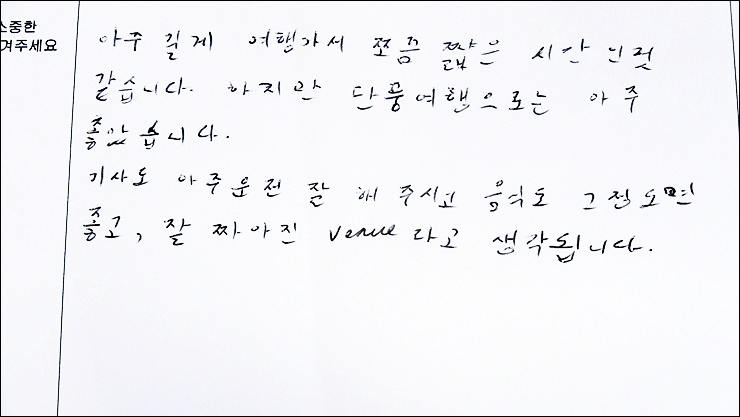 소중한
겨주세요
아주 길게 여행가서 쪼끔 짧은 시간 인것
같습니다. 하지만 단풍여행으로는 아주
좋았습니다.
기사도 아주운전 잘 해 주시고 음식도 그정도면
좋고, 잘 짜아진 venue 라고 생각됩니다.